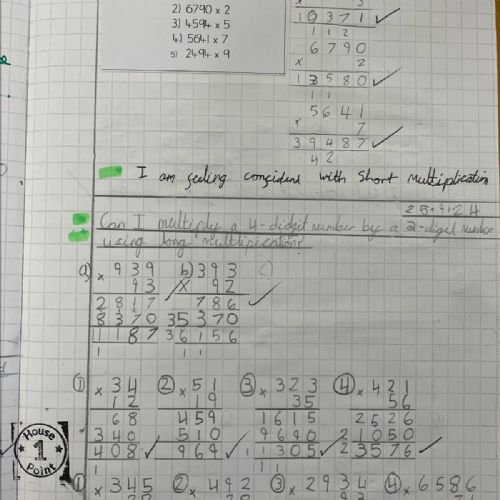 2) 6790 x 2
3) 4594 x 5
4) 5641 x 7
5) 2494 x 9
10371
1 1 2
6790
x 2
13580
1 1
5641
x 7
39487
4 2
I am feeling confident with short multiplication
25.9.24
Can I multiply a 4-digit number by a 2-digit number
using long multiplication?
a) x 939 b) 393 c)
93 x 92
2817 786
8370 35370
11187 36156
1 1 1
① x 34 ② x 51 ③ x 323 ④ x 421
12 19 35 56
68 459 1615 2526
340 510 9690 21050
408 969 11305 23576
1 1 1
House
1
Point
① x 345 ② x 492 ③ x 2934 ④ x 6586